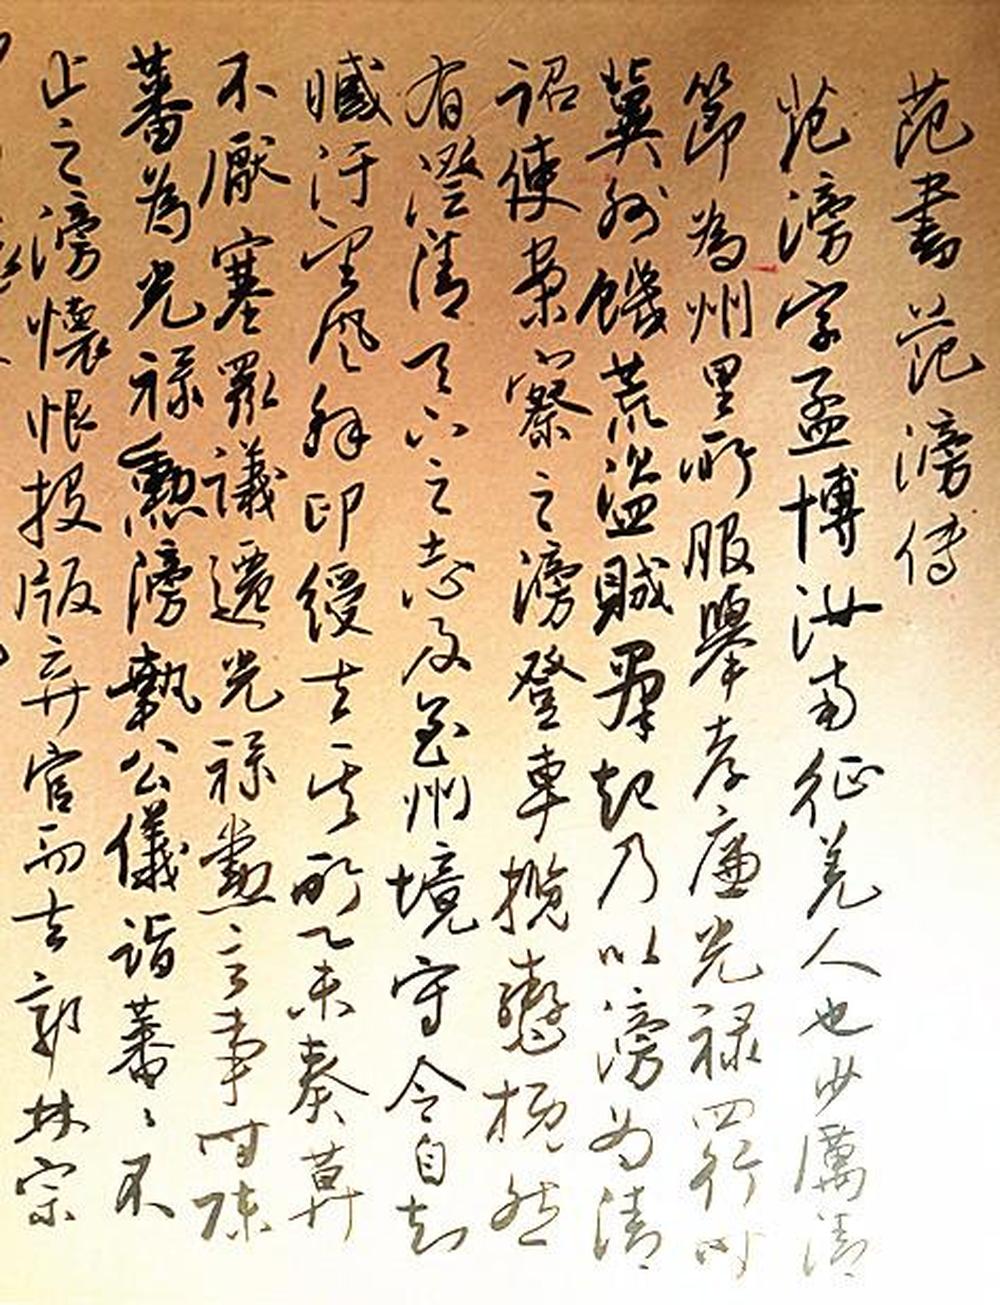 范書范滂傳
范滂字孟博汝南征羌人也少厲清
節為州里所服舉孝廉光祿四行時
冀州饑荒盜賊羣起乃以滂為清
詔使案察之滂登車攬轡慨然
有澄清天下之志及至州境守令自知
臧汙望風解印綬去其所舉奏莫
不厭塞眾議遷光祿勳主事時陳
蕃為光祿勳滂執公儀詣蕃〻不
止之滂懷恨投版弃官而去郭林宗